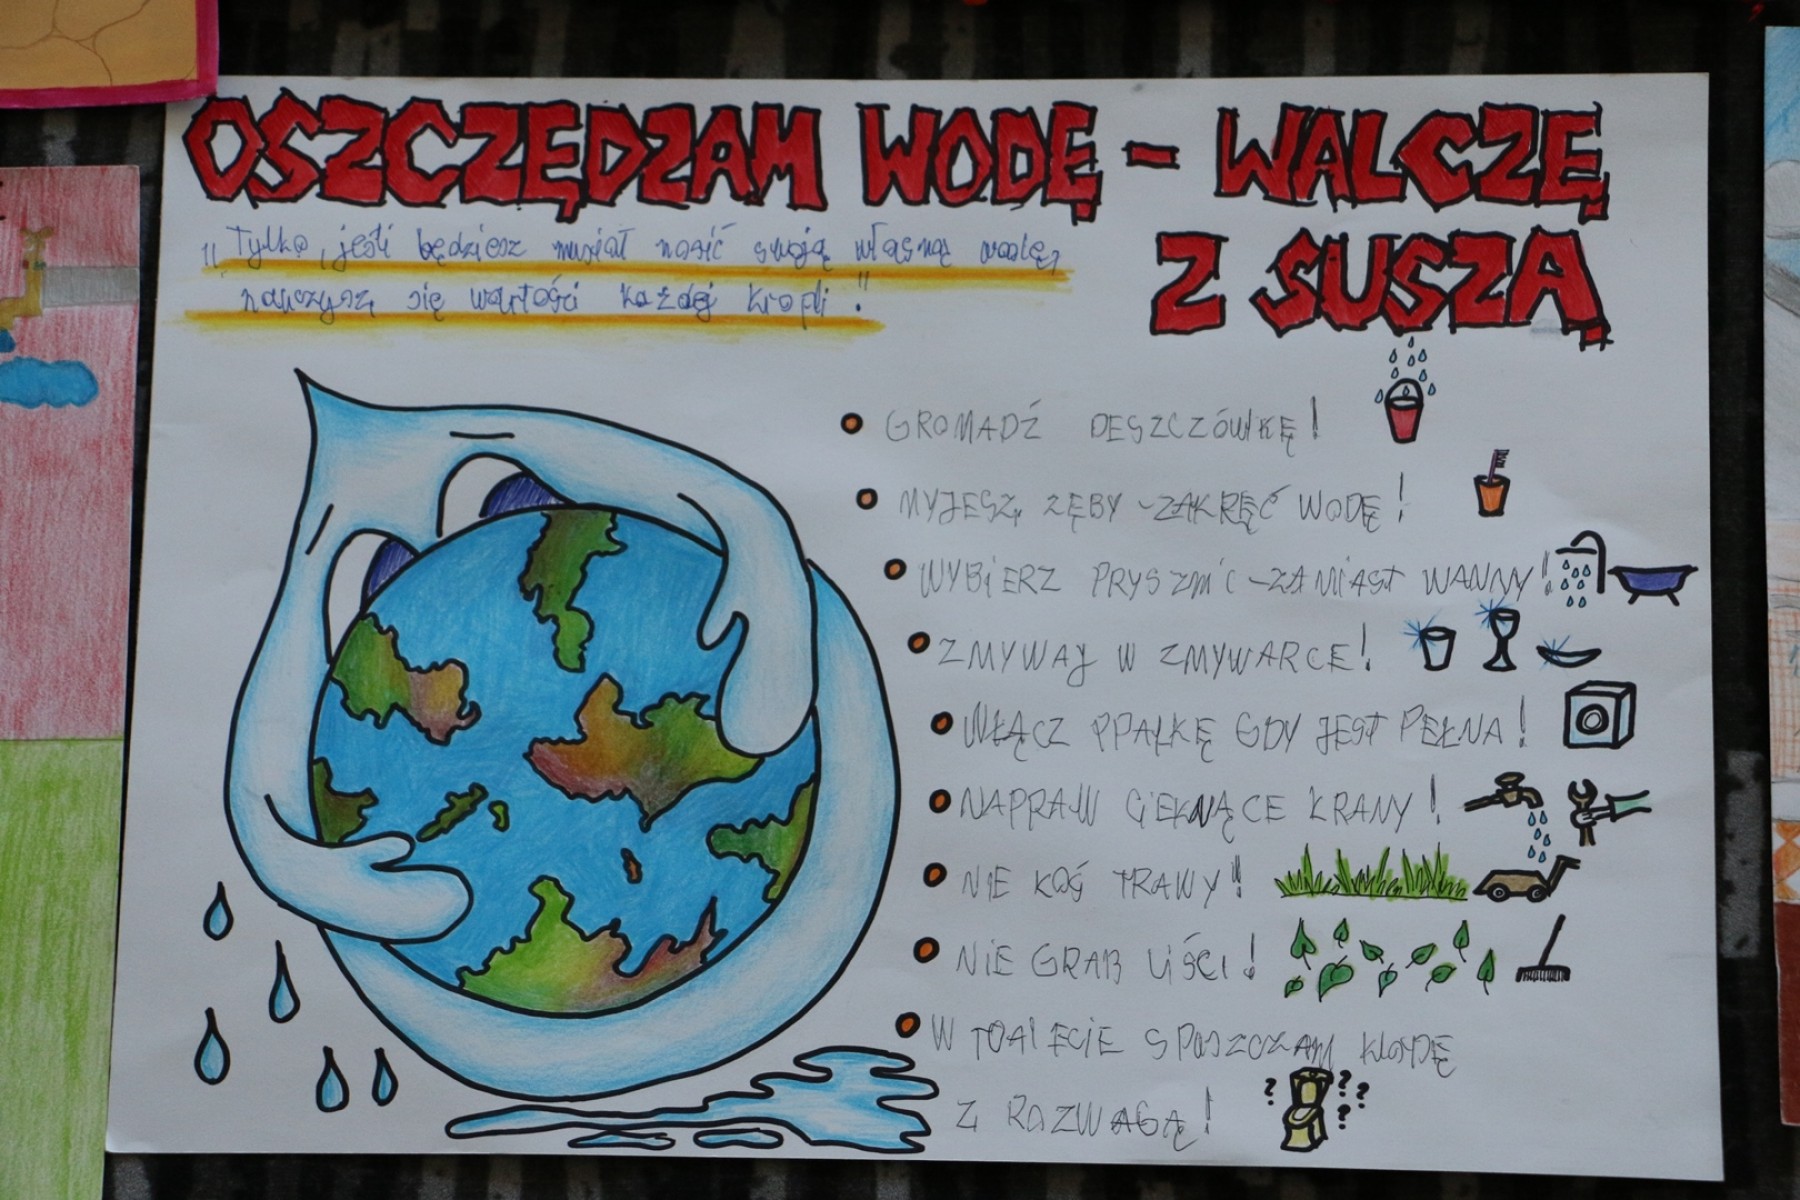 OSZCZĘDZAM WODĘ - WALCZĘ
Z SUSZĄ
"Tylko, jeśli będziesz musiał nosić swoją własną wodę,
nauczysz się wartości każdej kropli!"
GROMADŹ DESZCZÓWKĘ!
MYJESZ ZĘBY - ZAKRĘĆ WODĘ!
WYBIERZ PRYSZNIC - ZAMIAST WANNY!
ZMYWAJ W ZMYWARCE!
WŁĄCZ PPALKĘ GDY JEST PEŁNA!
NAPRAW CIEKNĄCE KRANY!
NIE KOŚ TRAWY!!
NIE GRAB LIŚCI!
W TOALECIE SPUSZCZAM WODĘ
Z ROZWAGĄ!